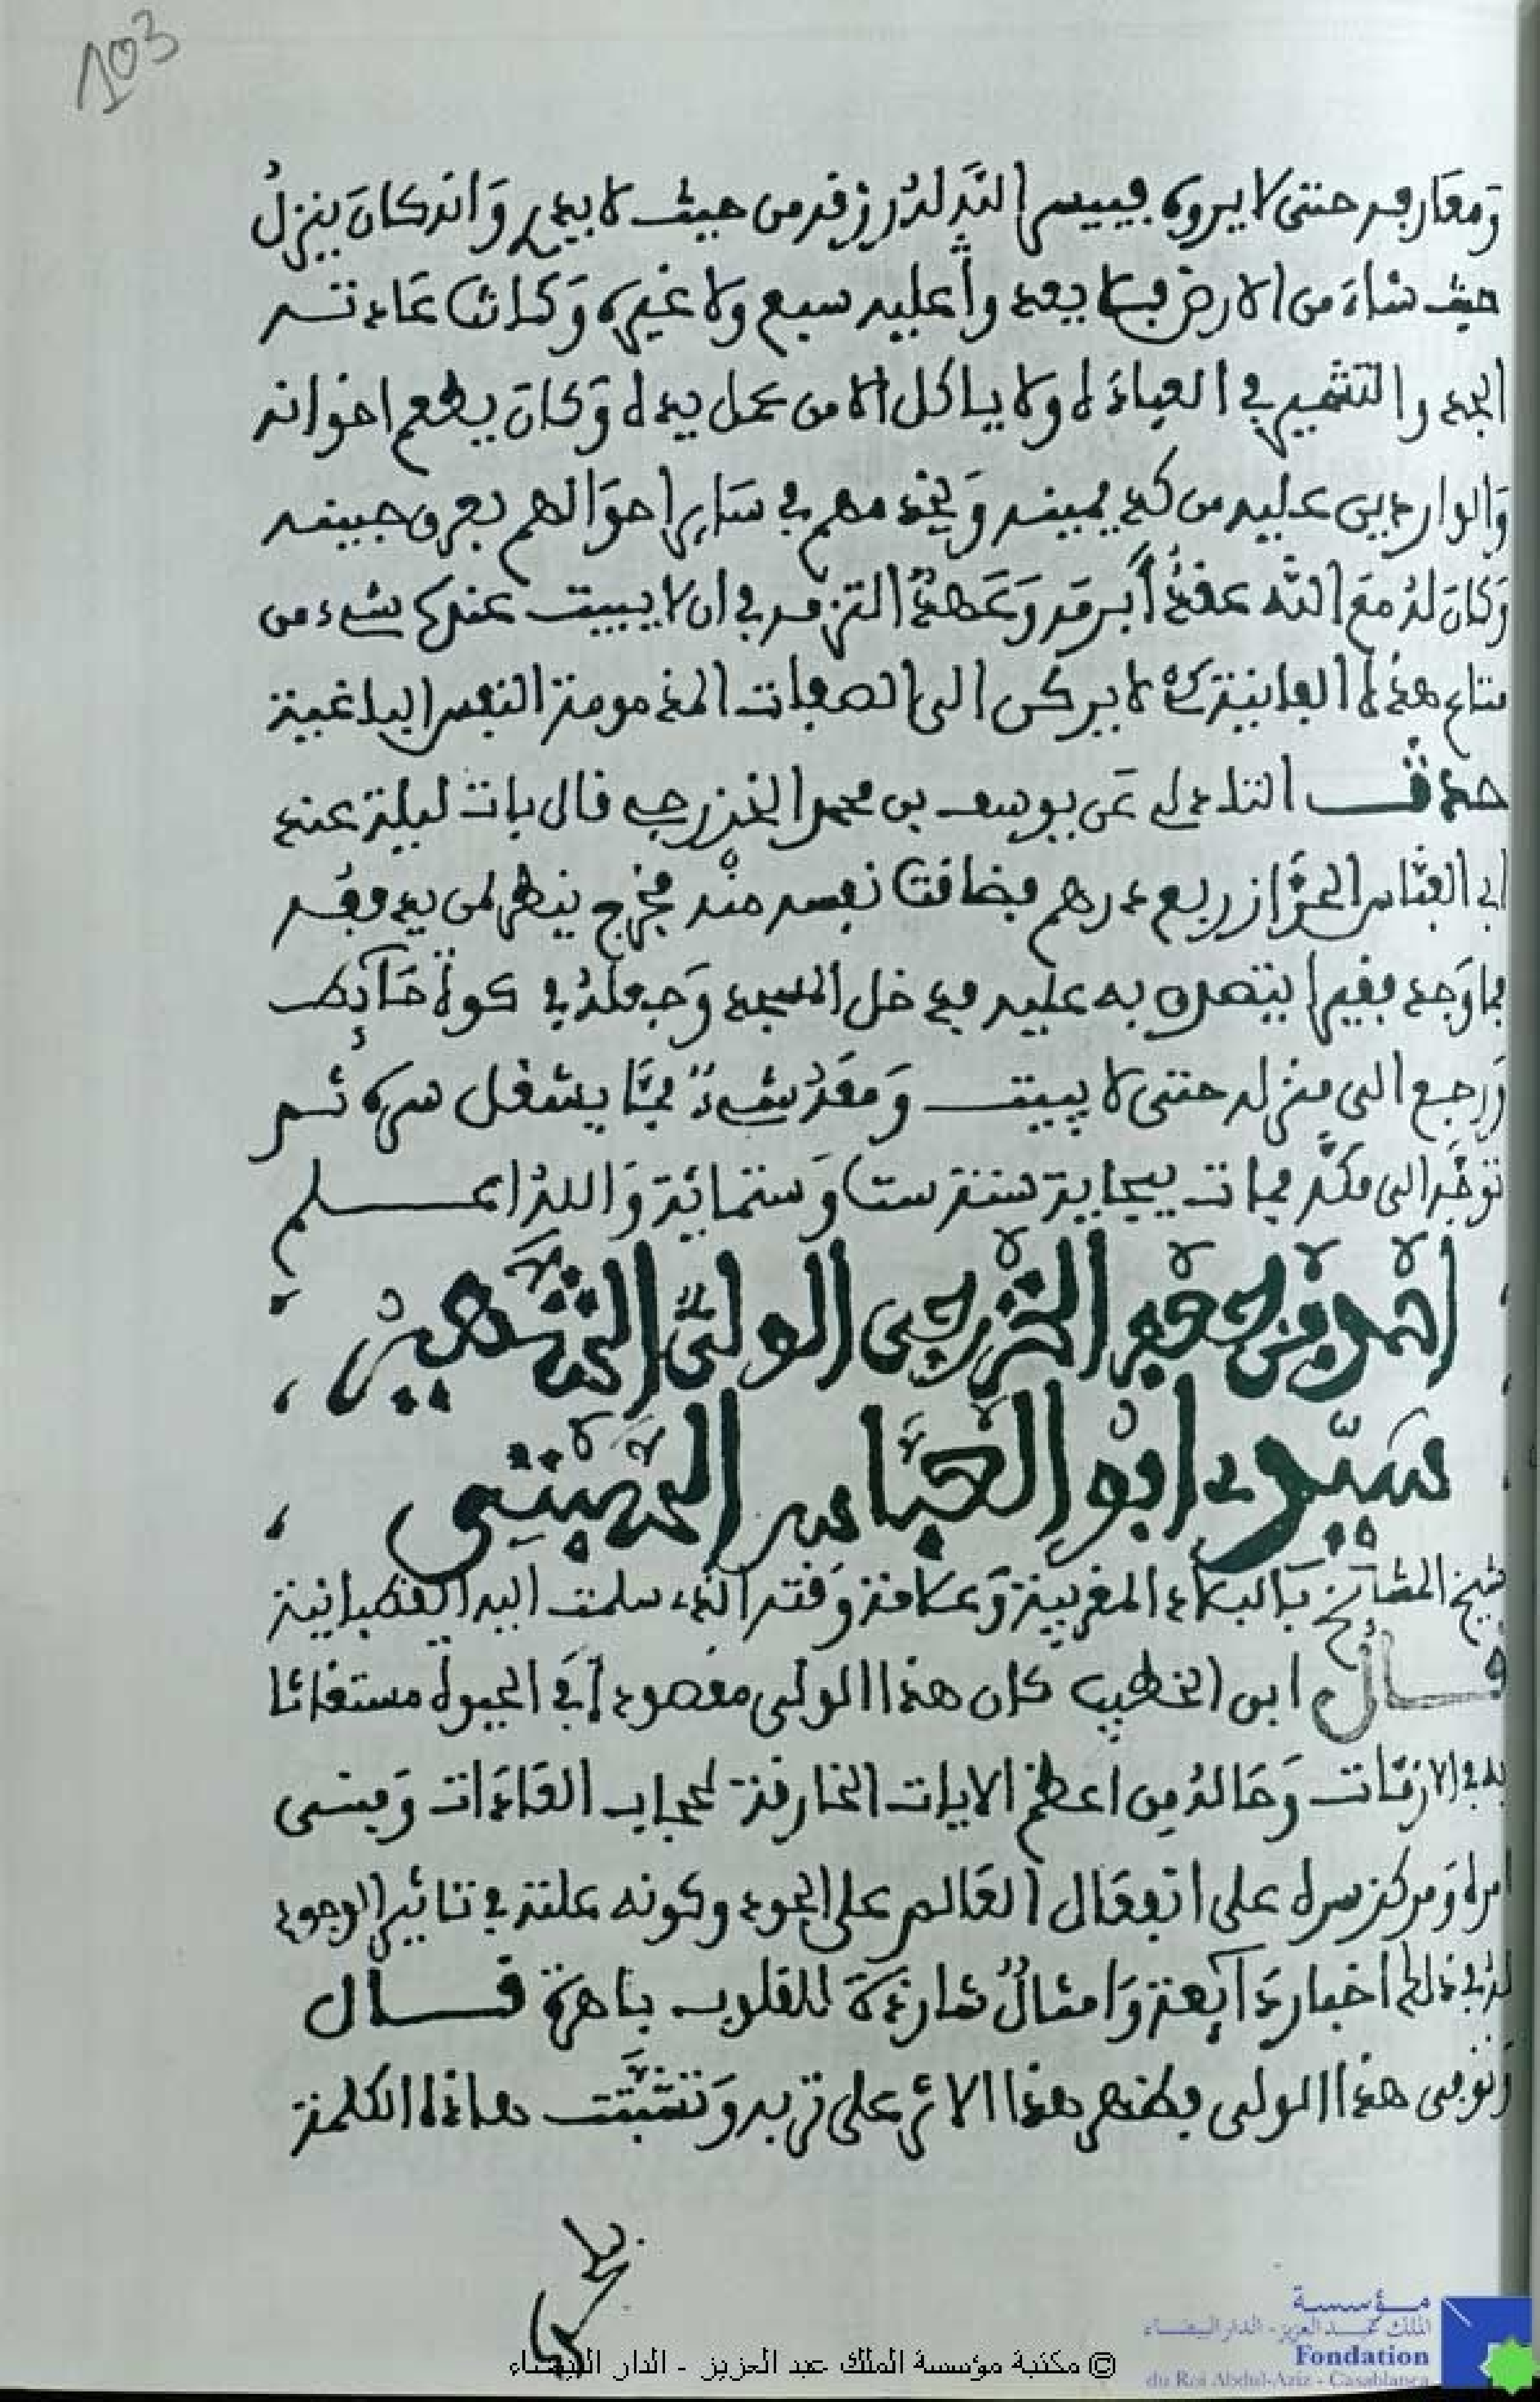 103
وَمعَارفه حتى لا يروه فييسر اللَّه لهُ رزقه من حيث لا يدرِي وَانه كانَ ينزلُ
حيث شاءَ من الارض فلا يعدوا عليه سبع ولا غيره وَكانت عَادته
الجد والتشمير في العبادَة ولا ياكل الا من عمل يده وَكانَ يطعم اخوانه
وَالواردين عليه من كد يمينه وَيخدمهم في سَاير احوَالهم بعرق جبينه
وَكانَ لهُ معَ اللَّه عقدٌ أَبرمَه وَعَهدٌ التزمه في ان لا يبيت عنده شيء من
متاع هذه الفانية كَي لا يركن الى الصفات المذمومة النفس الباغية
حدث التادلي عَن يوسف بن محمد الخزرجي قال باتت ليلة عند
ابي العبَّاس الخرَّاز ربع درهم فضاقت نفسه منْه فخرج ينظر لمن يدفعُه
فما وَجد فقيرا يتصدق به عليه فدخل المسجد وَجعلهُ في كوة حَآيط
وَرجع الى منزله حتى لا يبيت وَمعَهُ شيءٌ ممَّا يشغل سره ثم
توجَّه الى مكَّة فمات ببجاية سنة ست وَستمائة وَاللهُ اعلم
احمد بن جعفر الخزرجي الولي الشَّهير
سَيّدي ابو العبَّاس السَّبْتي
شيخ المشايخ بَالبلاد المغربية وَعلامة وَقته الذي سلمت اليه القطبانية
قال ابن الخطيب كان هذا الولي مقصودا في الحيوة مستغاثا
به في الازمَات وَحَالهُ مِن اعظم الايات الخارقة لحجاب العَادَات وَمبنى
امره وَمركز سره على انفعَال العَالم على الجود وكونه علة في تاثير الوجود
لهُ في ذلك اخبار ذَآيعة وَامثالٌ شاردَة للقلوب بَاهرة قال
وَتوفي هذا الولي فظهر هذا الاثر على تربه وَتشبَّثت هاذه الكلمة
© مكتبة مؤسسة الملك عبد العزيز - الدار البيضاء
مؤسسة
الملك عبد العزيز - الدار البيضاء
Fondation
du Roi Abdul-Aziz - Casablanca